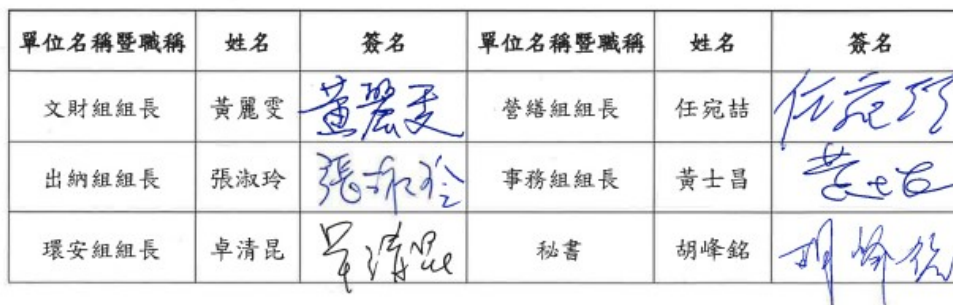 單位名稱暨職稱 姓名 簽名 單位名稱暨職稱 姓名 簽名
文財組組長 黃麗雯 黃麗雯 營繕組組長 任宛喆
出納組組長 張淑玲 張淑玲 事務組組長 黃士昌 黃士昌
環安組組長 卓清昆 卓清昆 秘書 胡峰銘 胡峰銘